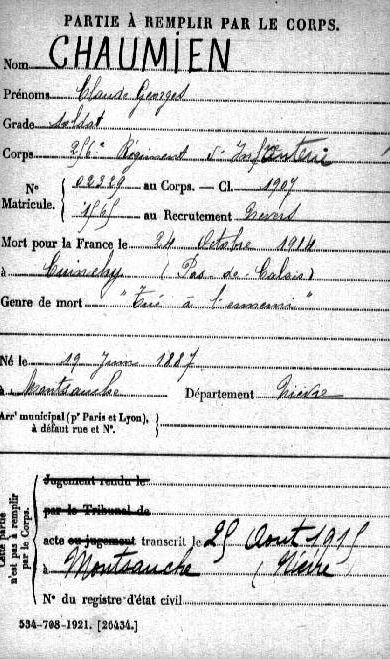 PARTIE À REMPLIR PAR LE CORPS.
Nom CHAUMIEN
Prénoms Claude Georges
Grade soldat
Corps 256e Régiment d'Infanterie
N° Matricule. { 02329 au Corps. — Cl. 1907
1565 au Recrutement Nevers
Mort pour la France le 24 Octobre 1914
à Cuinchy (Pas-de-Calais)
Genre de mort "Tué à l'ennemi"
Né le 19 Juin 1887
à Montsauche Département Nièvre
Arrt municipal (pr Paris et Lyon),
à défaut rue et N°.
Cette partie n'est pas à remplir par le Corps.
Jugement rendu le
par le Tribunal de
acte ou jugement transcrit le 25 Aout 1915
à Montsauche (Nièvre)
N° du registre d'état civil
534-708-1921. [26434.]